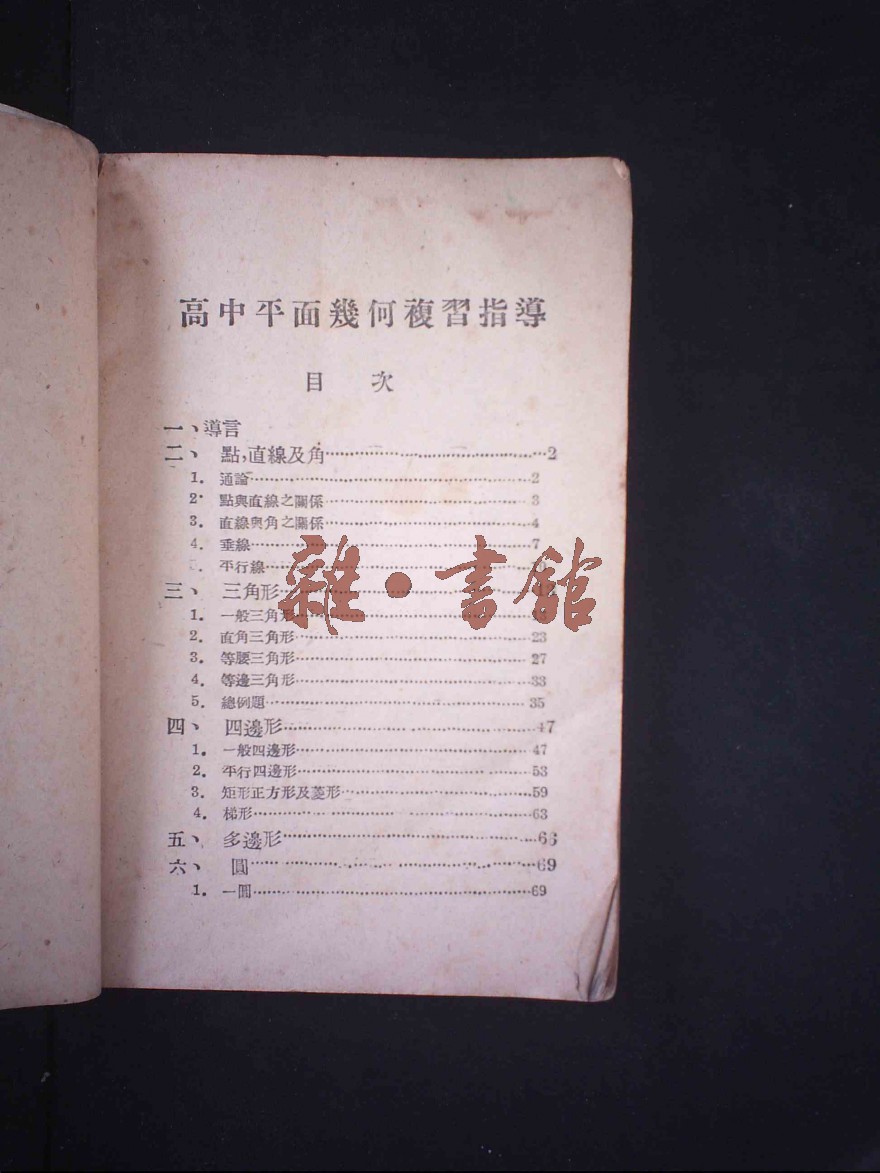 高中平面幾何複習指導
目 次
一、導言
二、 點,直線及角……………………………2
1. 通論……………………………2
2. 點與直線之關係……………………………3
3. 直線與角之關係……………………………4
4. 垂線……………………………7
平行線……………………………
三、 三角形……………………………
1. 一般三角形……………………………
2. 直角三角形……………………………23
3. 等腰三角形……………………………27
4. 等邊三角形……………………………33
5. 總例題……………………………35
四、 四邊形……………………………47
1. 一般四邊形……………………………47
2. 平行四邊形……………………………53
3. 矩形正方形及菱形……………………………59
4. 梯形……………………………63
五、 多邊形……………………………66
六、 圓……………………………69
1. 一圓……………………………69
雜·書館